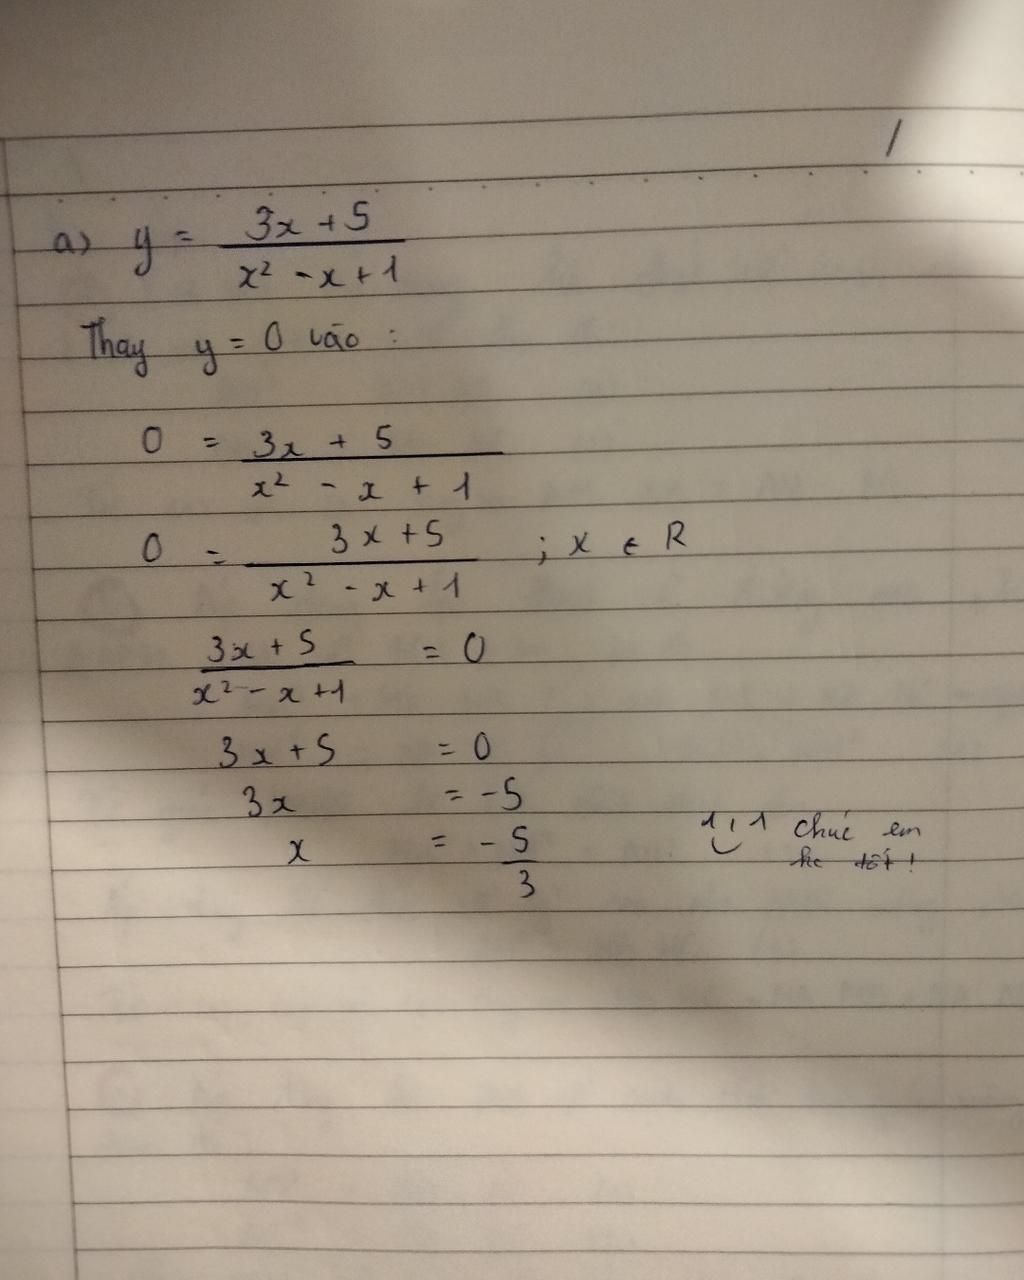 /
a) y = (3x + 5)/(x² - x + 1)
Thay y = 0 vào :
0 = (3x + 5)/(x² - x + 1)
0 = (3x + 5)/(x² - x + 1) ; x ∈ R
(3x + 5)/(x² - x + 1) = 0
3x + 5 = 0
3x = -5
x = -5/3
chúc em
hc tốt !